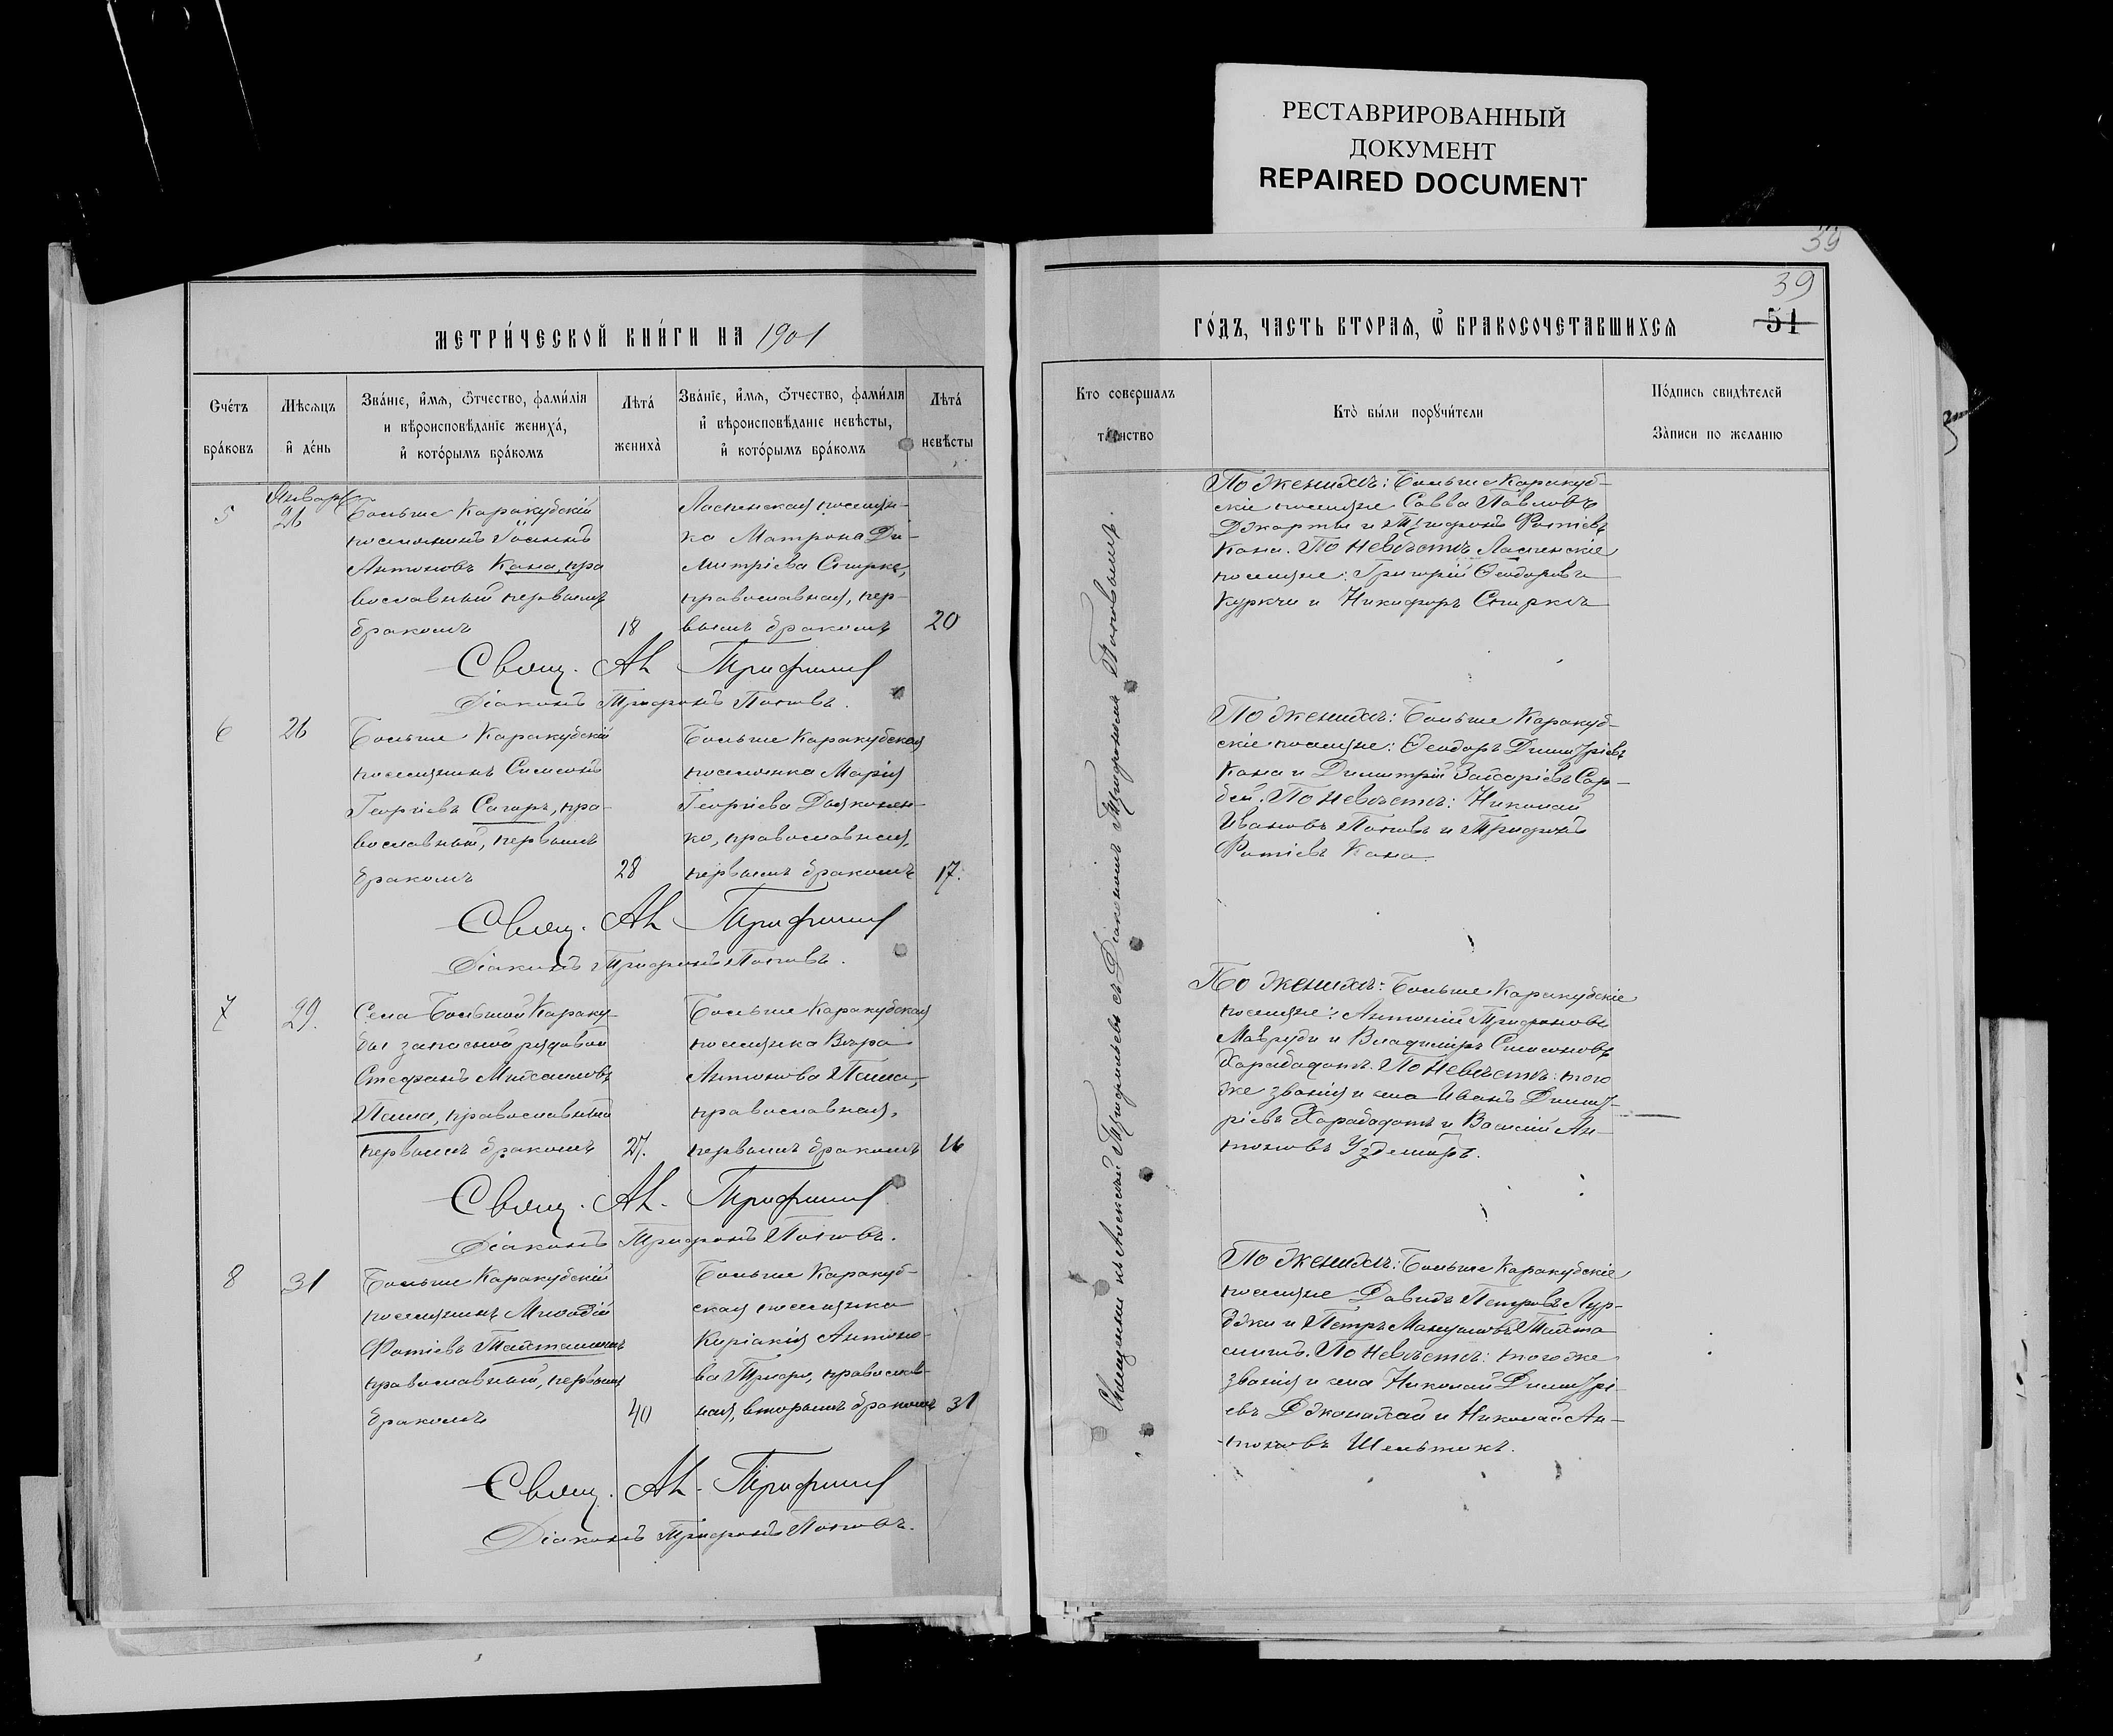 РЕСТАВРИРОВАННЫЙ
ДОКУМЕНТ
REPAIRED DOCUMENT
39
39
51
МЕТРИ́ЧЕСКОЙ КНИ́ГИ НА 1901
ГО́ДЪ, ЧАСТЬ ВТОРАѦ, Ѽ БРАКОСОЧЕТАВШИХСѦ
Счéтъ
брáковъ
Мѣсѧцъ
и҆ дéнь
Звáнїе, и҆́мѧ, ѻ҆́тчество, фами́лїѧ
и вѣроисповѣ́данїе женихà,
и҆ котóрымъ брáкомъ
Лѣтá
женихà
Звáнїе, и҆́мѧ, ѻ҆́тчество, фами́лїѧ
и҆ вѣроисповѣ́данїе невѣ́сты,
и҆ котóрымъ брáкомъ
Лѣтá
невѣ́сты
Кто совершалъ
тáинство
Ктò бы́ли порꙋчи́тели
Пóдпись свидѣ́телей
Зáписи по желанїю
5
Января
26
Больше Каракубскій
поселянинъ Іоаннъ
Антоновъ Кана, пра
вославный первымъ
бракомъ
18
Ласпинская поселян-
ка Матрона Ди-
митріева Спирке,
православная, пер-
вымъ бракомъ
20
Свящ. Ал. Трифиліев
Діаконъ Трифонъ Поповъ.
По женихѣ: Больше Каракуб-
скіе поселяне Савва Павловъ
Джарты и Трифонъ Фотіевъ
Кана. По невѣстѣ Ласпинскіе
поселяне: Григорій Ѳеодоровъ
Куркчи и Никифоръ Спирке
6
26
Больше Каракубскій
поселянинъ Симеонъ
Георгіевъ Сагиръ, пра-
вославный, первымъ
бракомъ
28
Больше Каракубская
поселянка Марія
Георгіева Дьяконен-
ко, православная,
первымъ бракомъ
17.
Свящ. Ал. Трифиліев
Діаконъ Трифонъ Поповъ.
По женихѣ: Больше Каракуб-
скіе поселяне: Ѳеодоръ Димитріевъ
Кана и Димитрій Захаріевъ Сар-
бей. По невѣстѣ: Николай
Ивановъ Поповъ и Трифонъ
Фотіевъ Кана.
7
29.
Села Большой Караку-
бы запасной рядовой
Стефанъ Михаиловъ
Паша, православный
первымъ бракомъ
27.
Больше Каракубская
поселянка Вѣра
Антонова Паша,
православная,
первымъ бракомъ
Свящ. Ал. Трифиліев
Діаконъ Трифонъ Поповъ.
По женихѣ: Больше Каракубскіе
поселяне: Антоній Трифоновъ
Мавруди и Владиміръ Симеоновъ
Харабадотъ. По невѣстѣ: того
же званія и села Иванъ Димит-
ріевъ Харабадотъ и Василій Ан-
тоновъ Уздемиръ.
8
31
Больше Каракубскій
поселянинъ Меѳодій
Фотіевъ Тахташинъ
православный, первымъ
бракомъ
40
Больше Каракуб-
ская поселянка
Киріакія Антоно-
ва Тпири, православ-
ная, вторымъ бракомъ
31
Свящ. Ал. Трифиліев
Діаконъ Трифонъ Поповъ.
По женихѣ: Больше Каракубскіе
поселяне Давидъ Петровъ Лур-
джи и Петръ Мануиловъ Тахта
шинъ. По невѣстѣ: того же
званія и села Николай Димитрі-
евъ Джанахай и Николай Ан-
тоновъ Шелтикъ.
Священникъ Алексѣй Трифиліевъ съ Діакономъ Трифономъ Поповымъ.